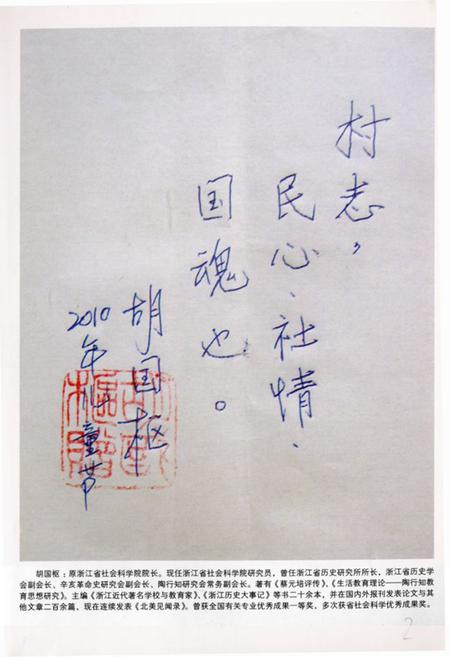 村志，
民心、社情、
国魂也。
胡国枢
2010年儿童节
胡国枢：原浙江省社会科学院院长。现任浙江省社会科学院研究员，曾任浙江省历史研究所所长，浙江省历史学
会副会长、辛亥革命史研究会副会长、陶行知研究会常务副会长。著有《蔡元培评传》、《生活教育理论——陶行知教
育思想研究》。主编《浙江近代著名学校与教育家》、《浙江历史大事记》等书二十余本，并在国内外报刊发表论文与其
他文章二百余篇，现在连续发表《北美见闻录》。曾获全国有关专业优秀成果一等奖，多次获省社会科学优秀成果奖。
2